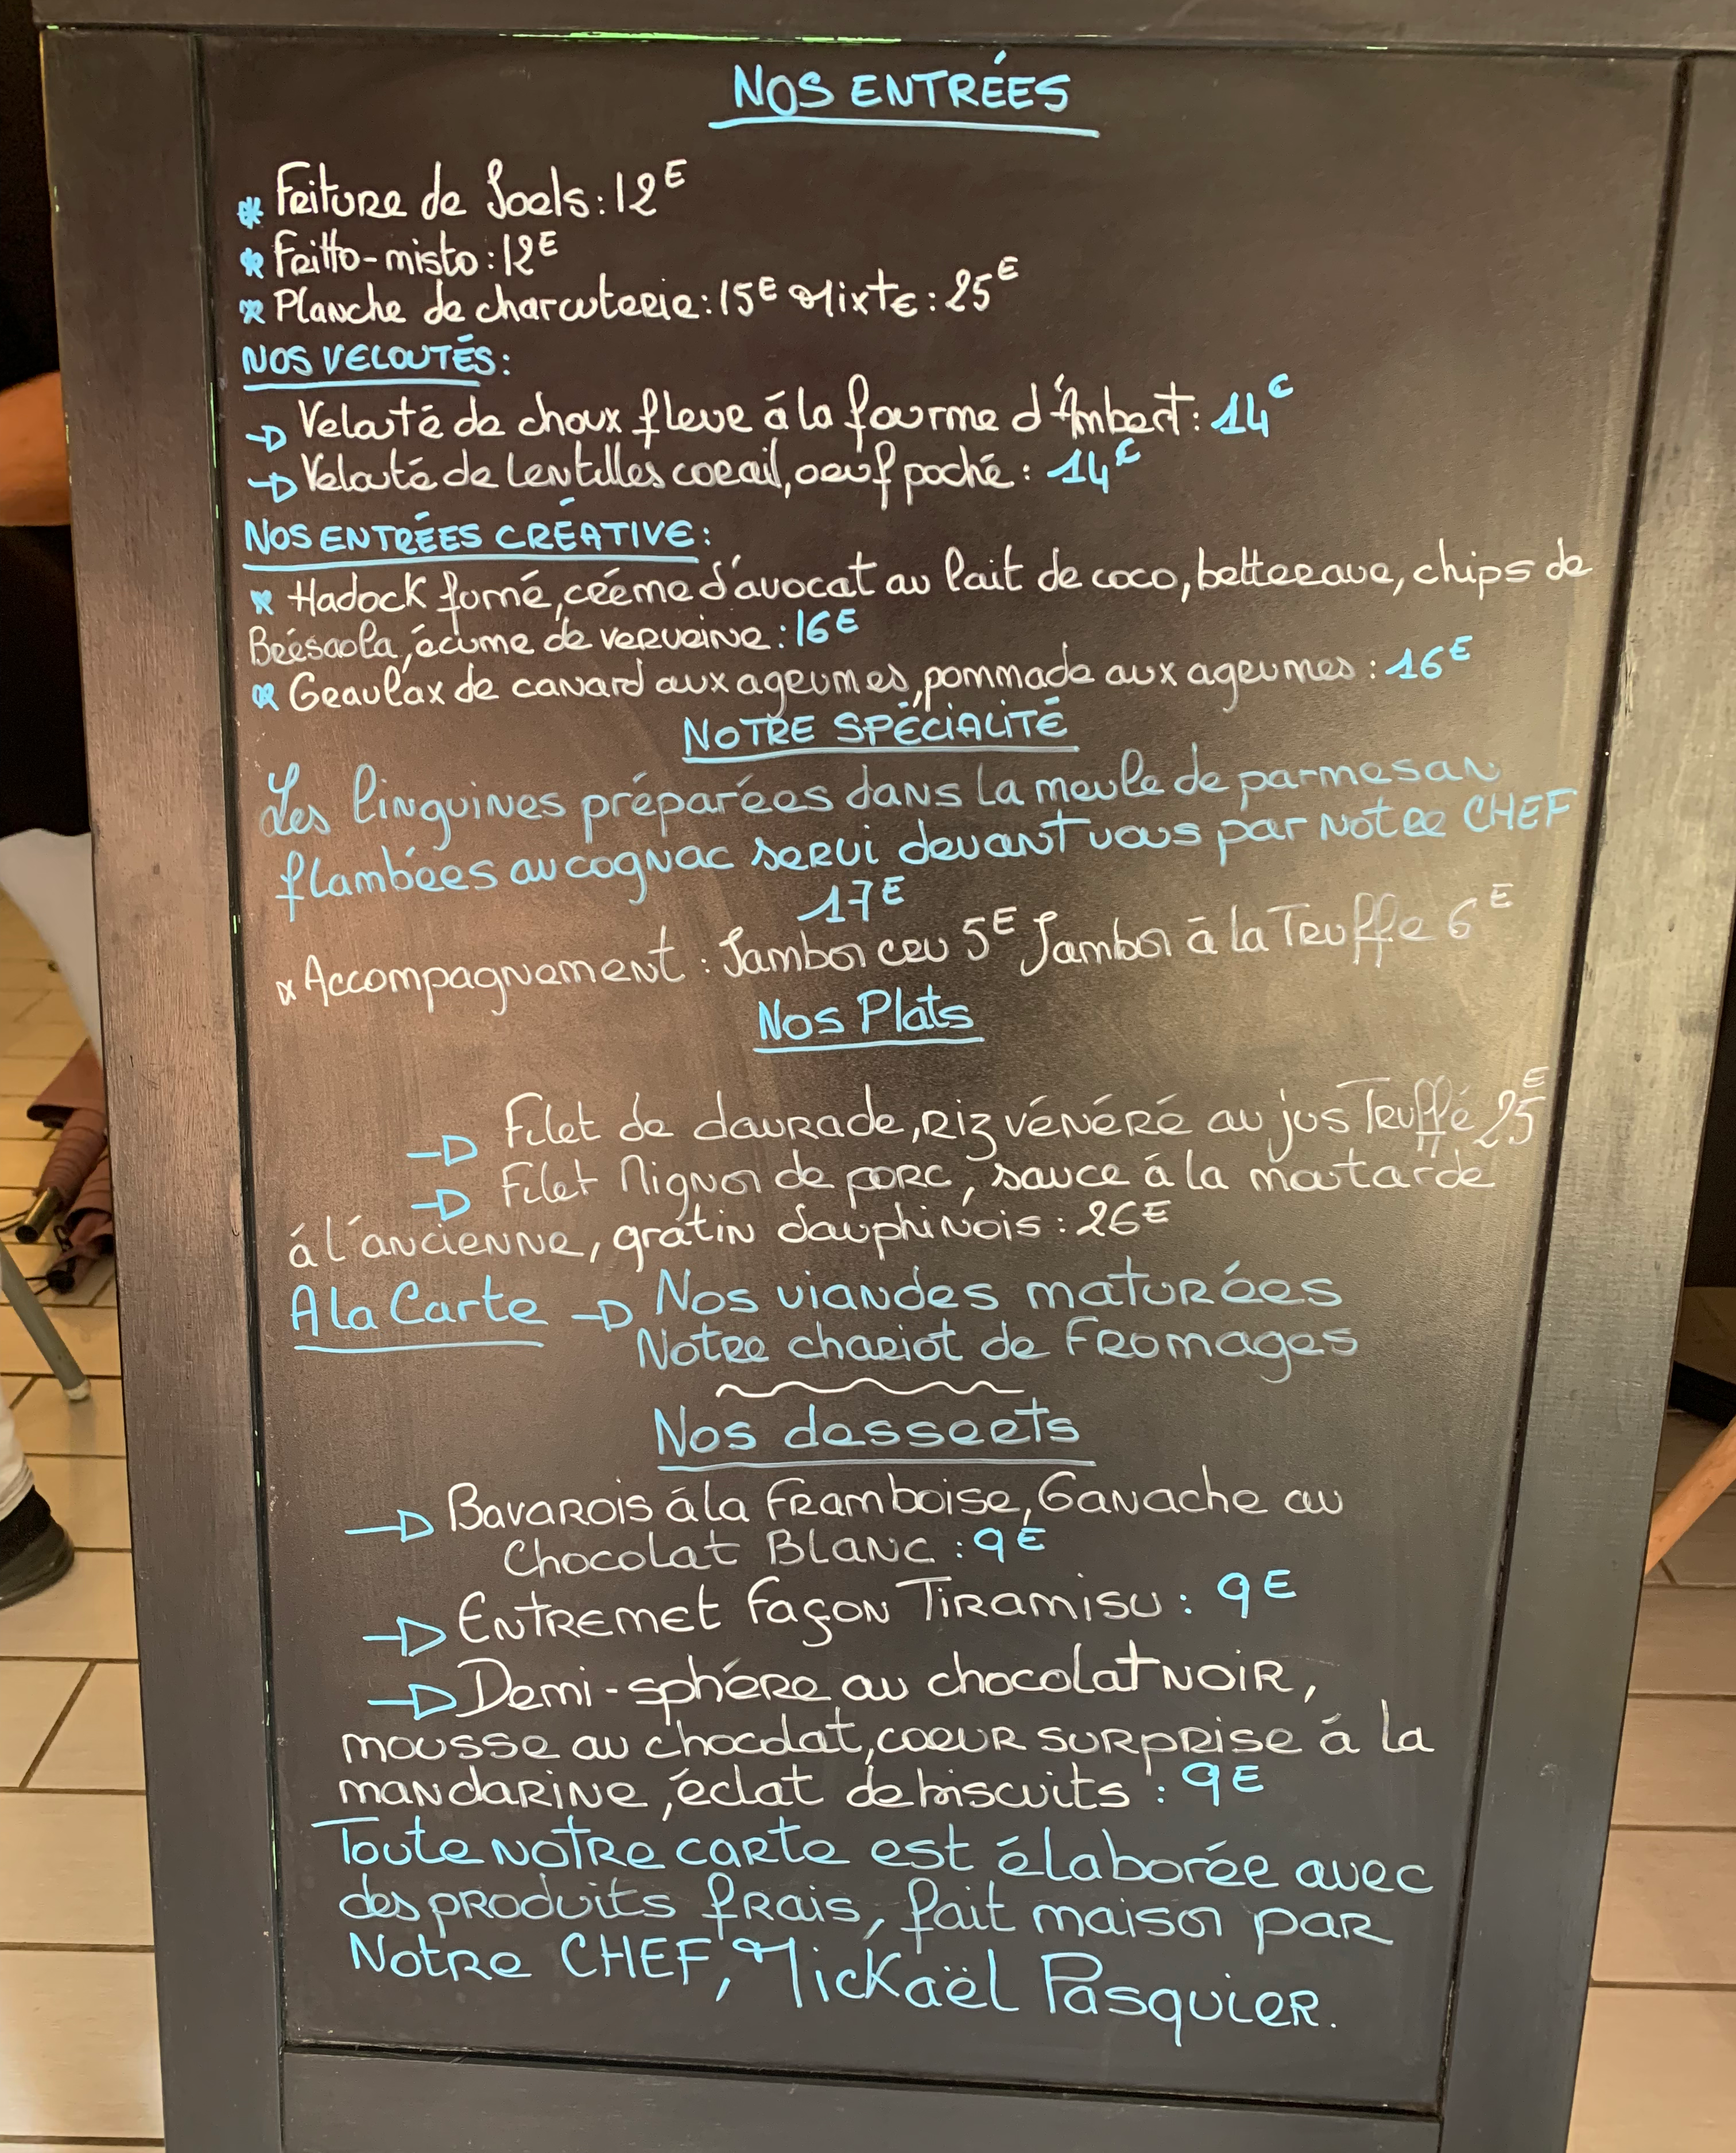 NOS ENTRÉES
* Friture de Joels: 12E
* Fritto-misto: 12E
* Planche de charcuterie: 15E Mixte: 25E
NOS VELOUTÉS:
Velouté de choux fleur à la fourme d'Ambert: 14€
Velouté de Lentilles corail, oeuf poché: 14€
NOS ENTRÉES CRÉATIVE:
* Hadock fumé, crème d'avocat au lait de coco, betterave, chips de
Brésaola, écume de verveine: 16E
* Gravlax de canard aux agrumes, pommade aux agrumes: 16E
NOTRE SPÉCIALITÉ
Les linguines préparées dans la meule de parmesan
flambées au cognac servi devant vous par notre CHEF
17E
* Accompagnement: Jambon cru 5E Jambon à la Truffe 6E
Nos Plats
Filet de daurade, riz vénéré au jus Truffé 25E
Filet Mignon de porc, sauce à la moutarde
à l'ancienne, gratin dauphinois: 26E
A la Carte Nos viandes maturées
Notre chariot de Fromages
Nos desserts
Bavarois à la Framboise, Ganache au
Chocolat Blanc: 9E
Entremet Façon Tiramisu: 9E
Demi-sphère au chocolat noir,
mousse au chocolat, coeur surprise à la
mandarine, éclat de biscuits: 9E
Toute notre carte est élaborée avec
des produits frais, fait maison par
Notre CHEF, Mickaël Pasquier.